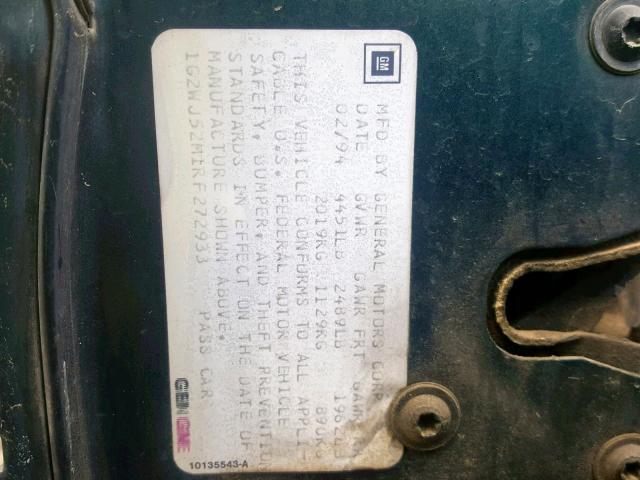 GM
MFD BY GENERAL MOTORS CORP
DATE GVWR GAWR FRT GAWR
02/94 4451LB 2489LB
2019KG 1129KG 890KG
THIS VEHICLE CONFORMS TO ALL APPLI-
CABLE U.S. FEDERAL MOTOR VEHICLE
SAFETY, BUMPER, AND THEFT PREVENTION
STANDARDS IN EFFECT ON THE DATE OF
MANUFACTURE SHOWN ABOVE.
1G2WJ52M1RF272933 PASS CAR
GENUINE
10135543-A